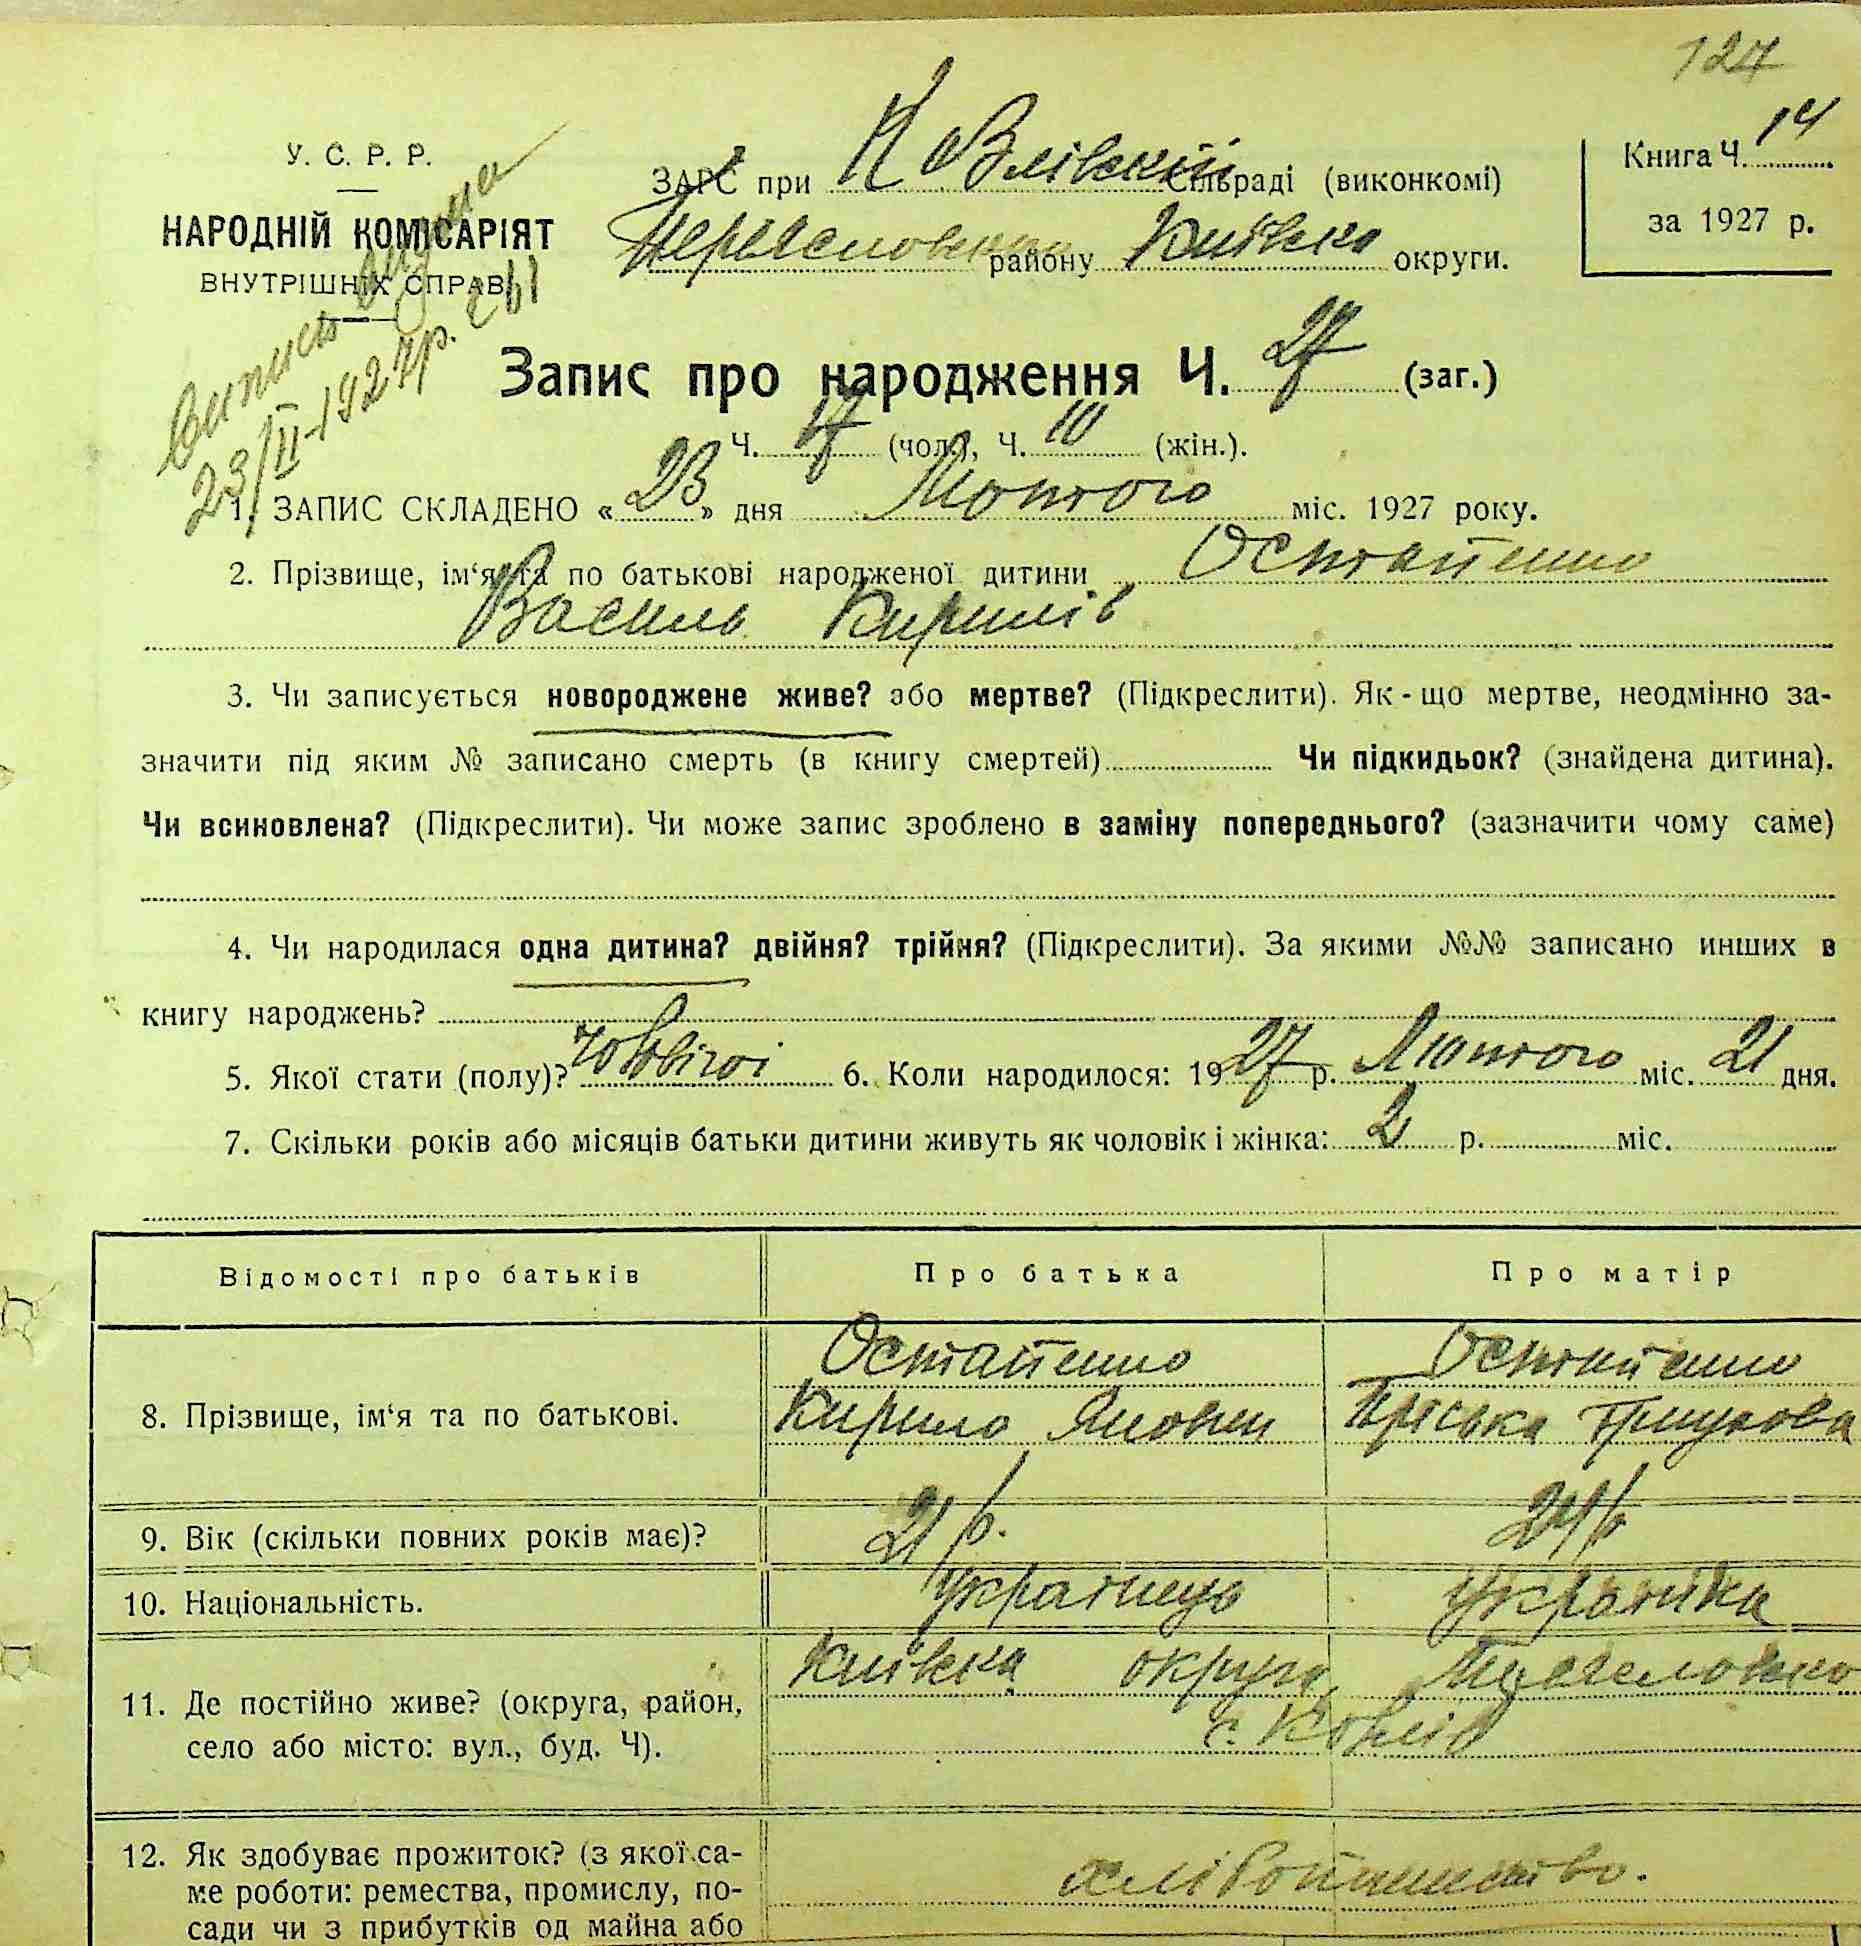 127
У. С. Р. Р.
НАРОДНІЙ КОМІСАРІЯТ
ВНУТРІШНІХ СПРАВ
Випись видана
23/II-1927р.
ЗАРС при Ковлівскій Сільраді (виконкомі)
району Київско округи.
Книга Ч. 14
за 1927 р.
Запис про народження Ч. 27 (заг.)
Ч. 17 (чол.), Ч. 10 (жін.).
1. ЗАПИС СКЛАДЕНО «23» дня Лютого міс. 1927 року.
2. Прізвище, ім‘я та по батькові народженої дитини Остапенко
Василь Кирилів
3. Чи записується новороджене живе? або мертве? (Підкреслити). Як-що мертве, неодмінно за-
значити під яким № записано смерть (в книгу смертей) Чи підкидьок? (знайдена дитина).
Чи всиновлена? (Підкреслити). Чи може запис зроблено в заміну попереднього? (зазначити чому саме)
4. Чи народилася одна дитина? двійня? трійня? (Підкреслити). За якими №№ записано инших в
книгу народжень?
5. Якої стати (полу)? 6. Коли народилося: 1927 р. Лютого міс. 21 дня.
7. Скільки років або місяців батьки дитини живуть як чоловік і жінка: 2 р. міс.
Відомості про батьків Про батька Про матір
Остапенко Остапенко
8. Прізвище, ім‘я та по батькові. Кирило Яковен Пріська
9. Вік (скільки повних років має)? 21 р. 24 р
10. Національність. українець українка
Київска округа
11. Де постійно живе? (округа, район,
село або місто: вул., буд. Ч). с. Ковлів
12. Як здобуває прожиток? (з якої са-
ме роботи: ремества, промислу, по-
сади чи з прибутків од майна або
хлібопашество.